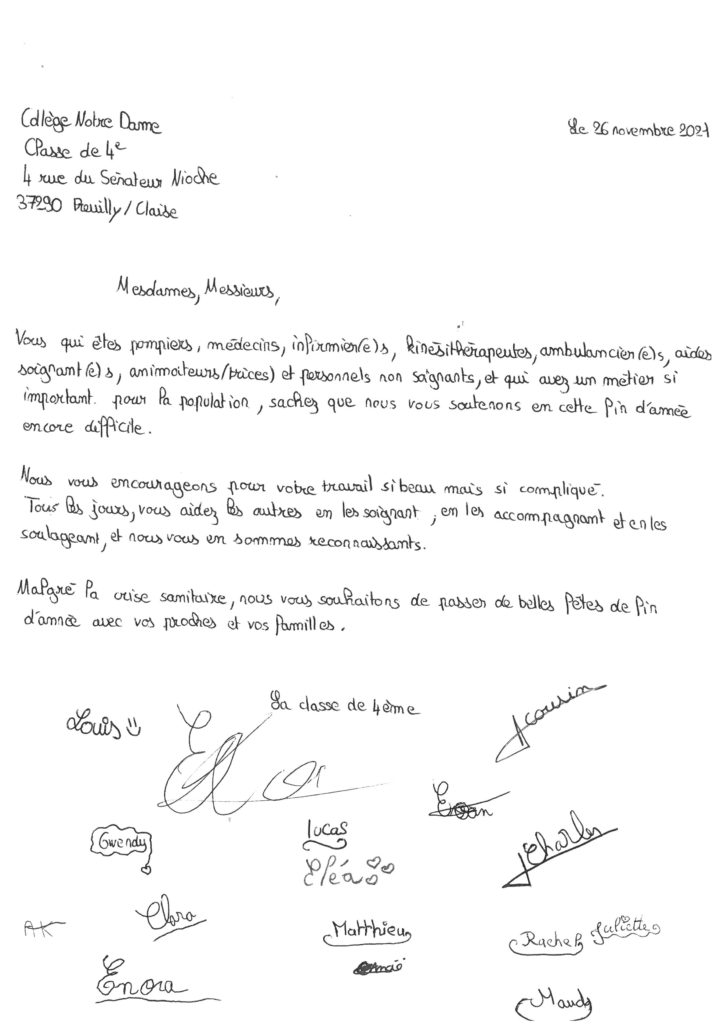 Collège Notre Dame
Le 26 novembre 2021
Classe de 4e
4 rue du Sénateur Nioche
37290 Preuilly/Claise
Mesdames, Messieurs,
Vous qui êtes pompiers, médecins, infirmier(e)s, kinésithérapeutes, ambulancier(e)s, aides
soignant(e)s, animateurs/trices) et personnels non soignants, et qui avez un métier si
important pour la population, sachez que nous vous soutenons en cette fin d'année
encore difficile.
Nous vous encourageons pour votre travail si beau mais si compliqué.
Tous les jours, vous aidez les autres en les soignant, en les accompagnant et en les
soulageant, et nous vous en sommes reconnaissants.
Malgré la crise sanitaire, nous vous souhaitons de passer de belles fêtes de fin
d'année avec vos proches et vos familles.
La classe de 4ème
Louis
Jcousin
Gwendy
Lucas
Cléa
Charles
Clara
AK
Matthieu
Rachel
Juliette
Enora
Maud